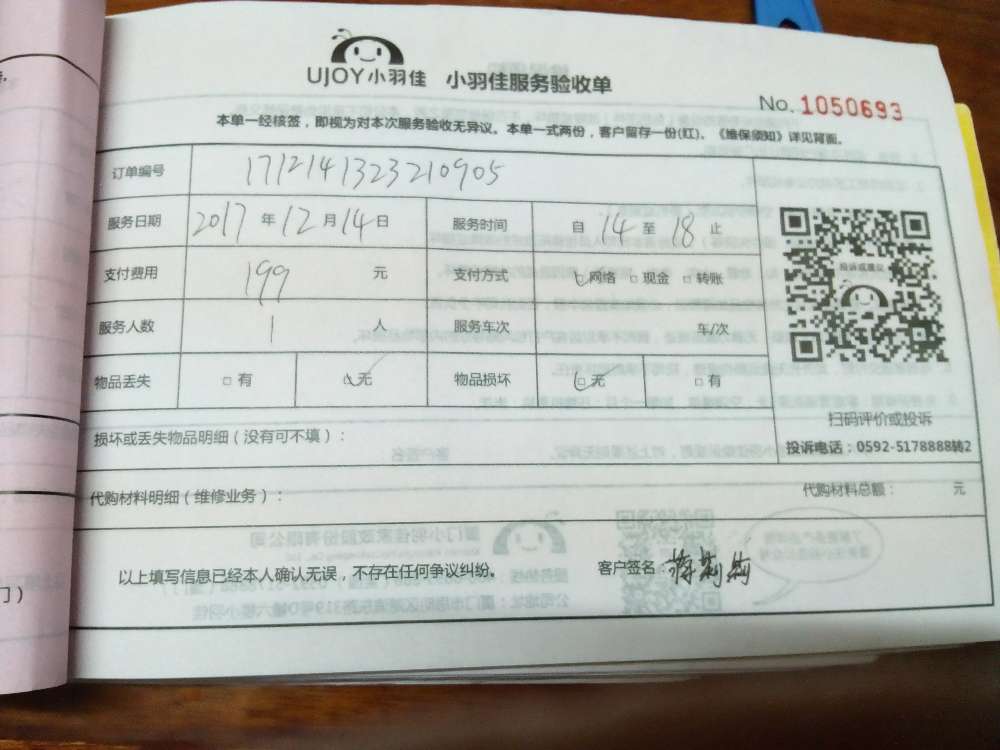 UJOY小羽佳 小羽佳服务验收单
No. 1050693
本单一经核签，即视为对本次服务验收无异议。本单一式两份，客户留存一份(红)。《维保须知》详见背面。
订单编号 1712141323210905
服务日期 2017 年 12 月 14 日 服务时间 自 14 至 18 止
支付费用 199 元 支付方式 网络 □ 现金 □ 转账
投诉或建议
服务人数 1 人 服务车次 车/次
物品丢失 □ 有 无 物品损坏 无 □ 有
扫码评价或投诉
损坏或丢失物品明细（没有可不填）：
投诉电话：0592-5178888转2
代购材料明细（维修业务）： 代购材料总额： 元
以上填写信息已经本人确认无误，不存在任何争议纠纷。 客户签名：
门）